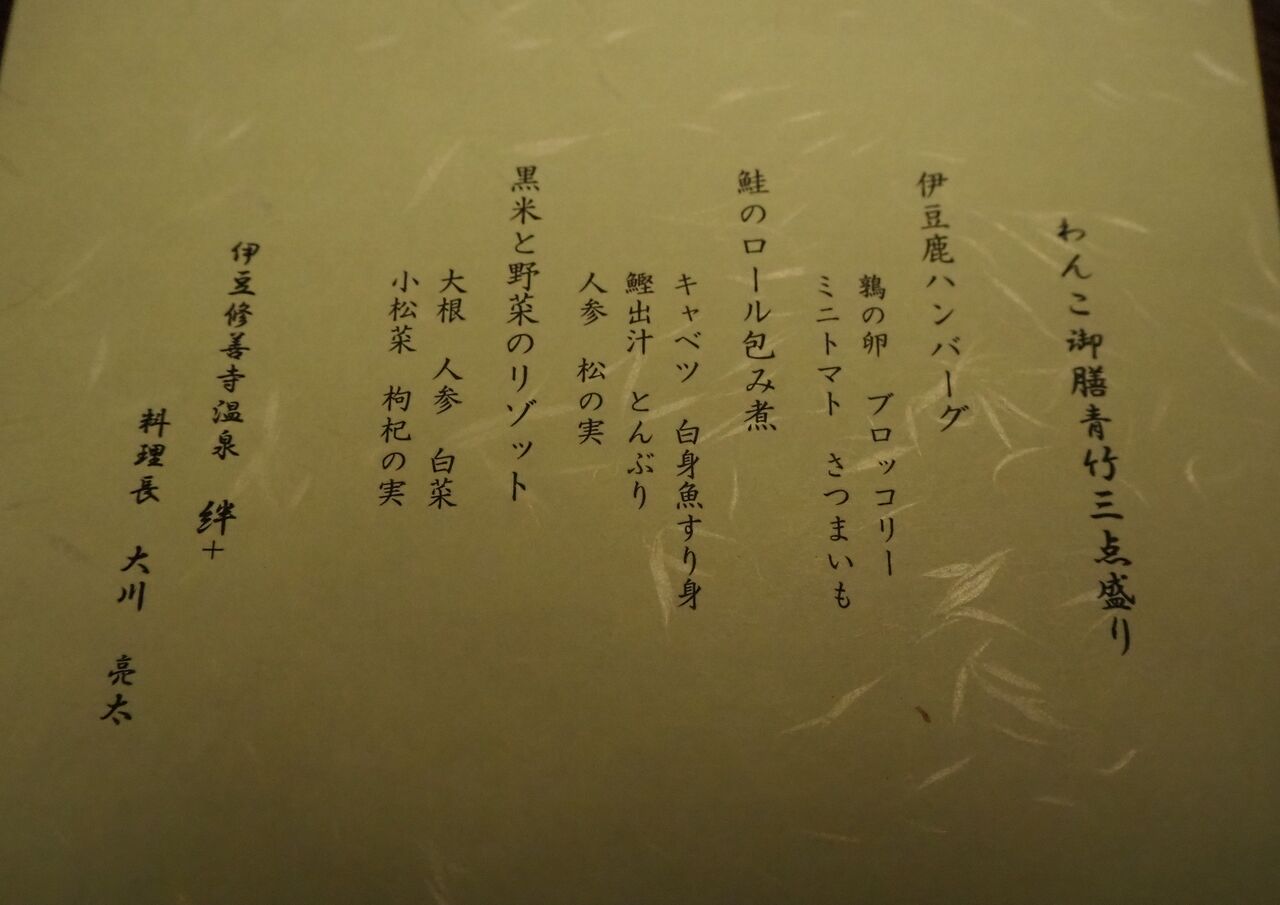 わんこ御膳青竹三点盛り
伊豆鹿ハンバーグ
鶉の卵　ブロッコリー
ミニトマト　さつまいも
鮭のロール包み煮
キャベツ　白身魚すり身
鰹出汁　とんぶり
人参　松の実
黒米と野菜のリゾット
大根　人参　白菜
小松菜　枸杞の実
伊豆修善寺温泉　絆+
料理長　大川　亮太